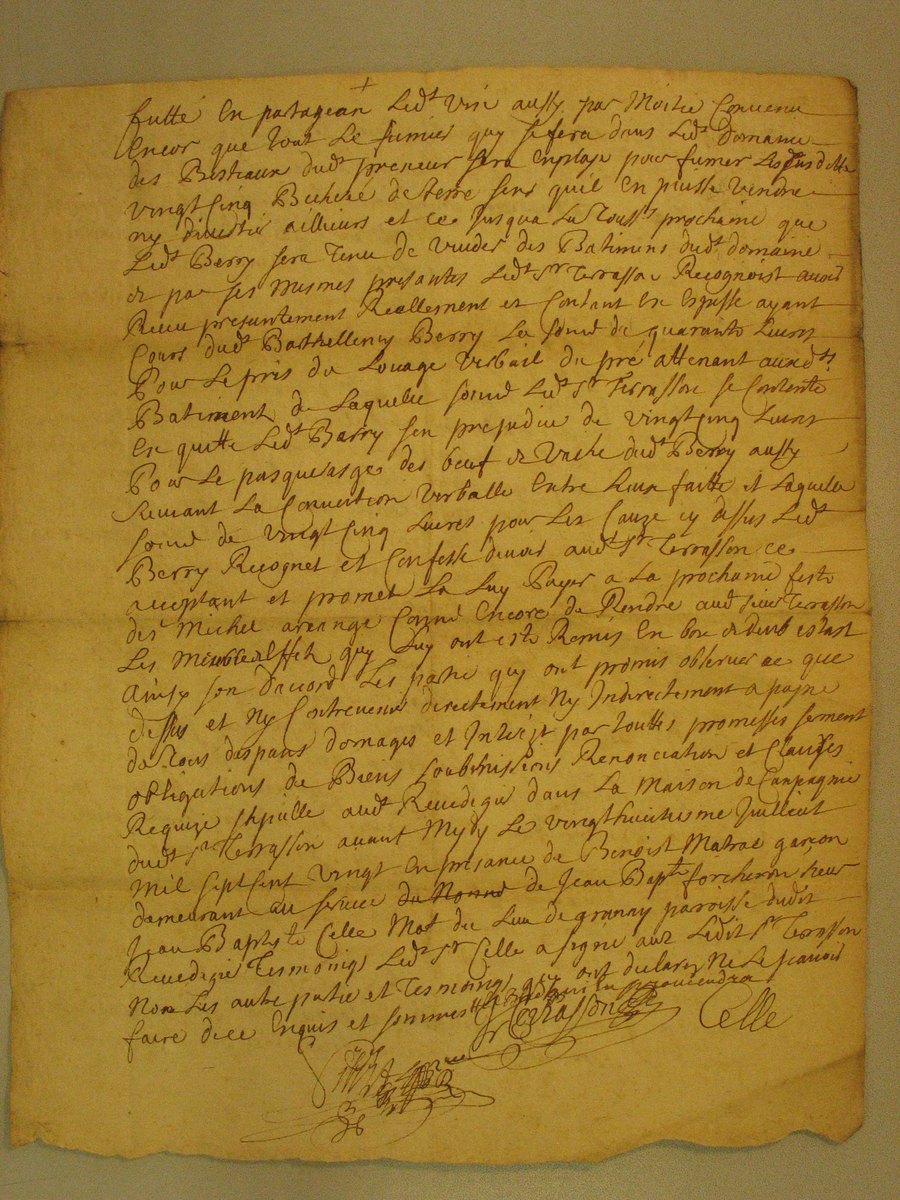 futté En partagean Led.t vin aussy par Moitié Convenu
Encor que tout Le fumier quy se fera dans Led.t Domaine
des Bestiaux dud.t preneur sera Enploye pour fumer Les
vingt Cinq Bicherée de terre sens quil En puisse vendre
ny divertir ailleurs et ce Jusqua La Touss.ts prochaine que
Led.t Berry sera Tenu de vuider des Batimens dud.t domaine
et par ses mesmes presantes Led.t S.r Terrasson Recognoist avoir
Receu presentement Reellement et Contant En Espesse ayant
Cours dud.t Barthellemy Berry La some de quarante Livres
Pour Le pris du Louage verbail du pré attenant auxd.ts
Batiment de Laquelle some Led.t S.r Terrasson se Contente
En quitte Led.t Barry sen prejudice de vingt Cinq Livres
Pour Le pasquerages des beuf et vache dud.t Berry aussy
suivant La Convention verballe Entre Eux faitte et Laquelle
some de vingt Cinq Livres pour Les Cauze cy dessus Led.t
Berry Recognet et Confesse devoir aud.t S.r Terrasson ce
acceptant et promet La Luy Payer a La prochaine feste
de S.t Michel arcange Comme Encore de Rendre aud.t sieur Terrasson
Les Meuble Effets quy Luy ont esté Remis En bon et deub estast
Ainsy son D'accord Les partie quy ont promis observer ce que
dessus et Ny Contrevenir directement Ny Indirectement a payne
de tous despans domages et Interest par touttes promesses serment
obligations de Biens soubmissions Renonciation et Clauses
Requize aud.t dans La Maison de Canpagnie
dud.t S.r Terrasson avant Mydy Le vingthuitiesme Juilliet
Mil sept Cent vingt En presance de Benoist Matrat garçon
demeurant au service de Jean Bap.te forcheron sieur
Jean Baptyte Celle du Lieu de granny paroisse dudit
Tesmoings Led.t S.r Celle a signé avz Ledit S.r Terrasson
Non Les autre partie et Tesmoings que ont declarer Ne Le scavoir
faire de ce Enquis et sommes
Terrasson
Celle